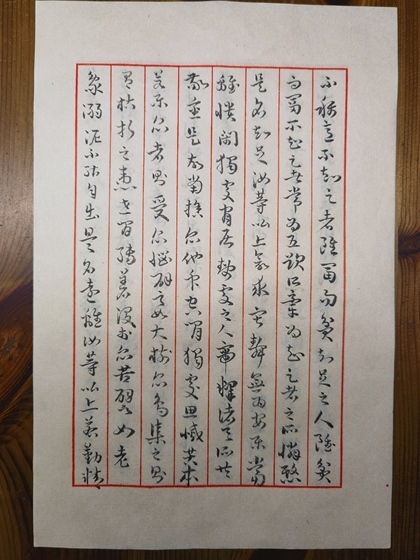 不稱意不知足者雖富而貧知足之人雖貧
而富不知足者常為五欲所牽為知足者之所憐愍
是名知足汝等比丘欲求寂靜無為安樂當
離憒鬧獨處閒居靜處之人帝釋諸天所共
敬重是故當捨己眾他眾空閒獨處思滅苦本
若樂眾者則受眾惱譬如大樹眾鳥集之則
有枯折之患世間縛著沒於眾苦譬如老
象溺泥不能自出是名遠離汝等比丘若勤精